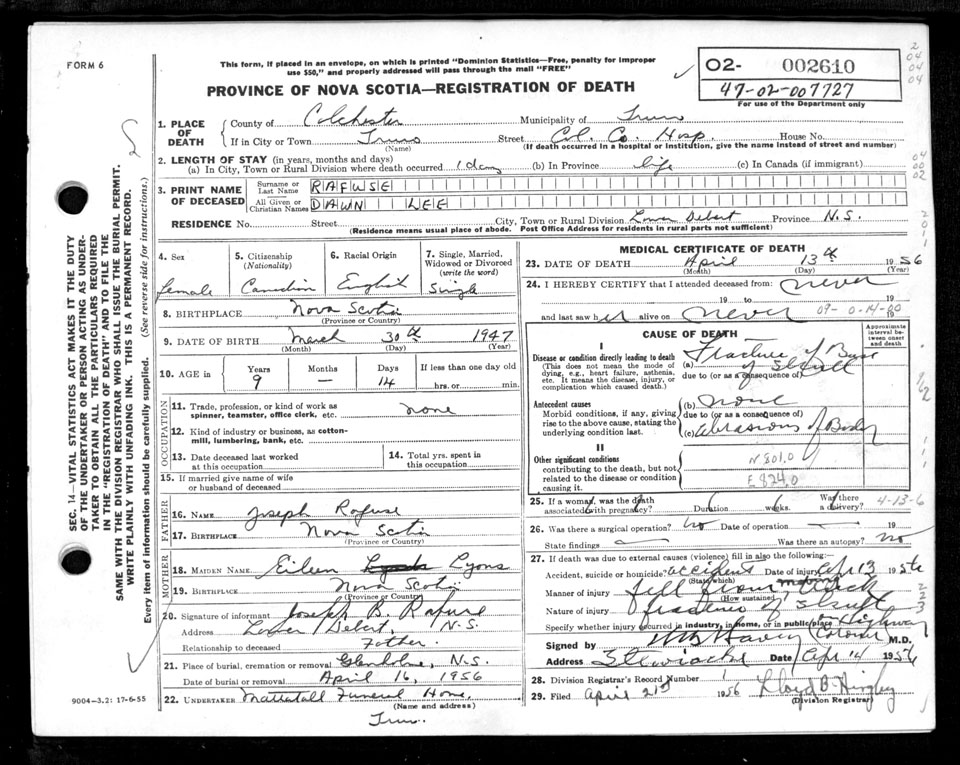 FORM 6
This form, if placed in an envelope, on which is printed "Dominion Statistics—Free, penalty for improper
use $50," and properly addressed will pass through the mail "FREE"
O2- 002610
47-02-007727
For use of the Department only
PROVINCE OF NOVA SCOTIA—REGISTRATION OF DEATH
1. PLACE OF DEATH
County of Colchester Municipality of Truro
If in City or Town Truro Street Col. Co. Hosp. House No.
(Name) (If death occurred in a hospital or institution, give the name instead of street and number)
2. LENGTH OF STAY (in years, months and days)
(a) In City, Town or Rural Division where death occurred 1 day (b) In Province life (c) In Canada (if immigrant)
3. PRINT NAME OF DECEASED
Surname or Last Name RAFUSE
All Given or Christian Names DAWN LEE
RESIDENCE No. Street City, Town or Rural Division Lower Debert Province N.S.
(Residence means usual place of abode. Post Office Address for residents in rural parts not sufficient)
4. Sex Female
5. Citizenship (Nationality) Canadian
6. Racial Origin English
7. Single, Married, Widowed or Divorced (write the word) Single
8. BIRTHPLACE Nova Scotia
(Province or Country)
9. DATE OF BIRTH March 30th 1947
(Month) (Day) (Year)
10. AGE in Years 9 Months — Days 14 If less than one day old hrs. or min.
OCCUPATION
11. Trade, profession, or kind of work as spinner, teamster, office clerk, etc. none
12. Kind of industry or business, as cotton-mill, lumbering, bank, etc.
13. Date deceased last worked at this occupation
14. Total yrs. spent in this occupation
15. If married give name of wife or husband of deceased
FATHER
16. NAME Joseph Rafuse
17. BIRTHPLACE Nova Scotia
(Province or Country)
MOTHER
18. MAIDEN NAME Eileen Lyons
19. BIRTHPLACE Nova Scotia
(Province or Country)
20. Signature of informant Joseph B. Rafuse
Address Lower Debert, N.S.
Relationship to deceased Father
21. Place of burial, cremation or removal N.S.
Date of burial or removal April 16, 1956
22. UNDERTAKER Mattatall Funeral Home,
(Name and address)
Truro.
MEDICAL CERTIFICATE OF DEATH
23. DATE OF DEATH April 13th 1956
(Month) (Day) (Year)
24. I HEREBY CERTIFY that I attended deceased from: never
19 to 19
and last saw her alive on never 19
CAUSE OF DEATH
Approximate interval between onset and death
I
Disease or condition directly leading to death
(This does not mean the mode of dying, e.g., heart failure, asthenia, etc. It means the disease, injury, or complication which caused death.)
(a) Fracture of Base of Skull
due to (or as a consequence of)
Antecedent causes
Morbid conditions, if any, giving rise to the above cause, stating the underlying condition last.
(b) none
due to (or as a consequence of)
(c) Abrasions of Body
II
Other significant conditions
contributing to the death, but not related to the disease or condition causing it.
N 801.0
E 824.0
25. If a woman, was the death associated with pregnancy? Duration weeks. Was there a delivery?
4-13-6
26. Was there a surgical operation? no Date of operation 19
State findings Was there an autopsy? no
27. If death was due to external causes (violence) fill in also the following:
Accident, suicide or homicide? accident Date of injury Apr 13 1956
(State which)
Manner of injury fell from moving truck
(How sustained)
Nature of injury fracture of Skull
Specify whether injury occurred in industry, in home, or in public place on Highway
Signed by Coroner M.D.
Address Stewiacke Date Apr 14 1956
28. Division Registrar's Record Number 1
29. Filed April 21st 1956 Lloyd B.
(Division Registrar)
9004-3.2: 17-6-55
SEC. 14—VITAL STATISTICS ACT MAKES IT THE DUTY
OF THE UNDERTAKER OR PERSON ACTING AS UNDER-
TAKER TO OBTAIN ALL THE PARTICULARS REQUIRED
IN THE "REGISTRATION OF DEATH" AND TO FILE THE
SAME WITH THE DIVISION REGISTRAR WHO SHALL ISSUE THE BURIAL PERMIT.
WRITE PLAINLY WITH UNFADING INK. THIS IS A PERMANENT RECORD.
Every item of information should be carefully supplied. (See reverse side for instructions.)